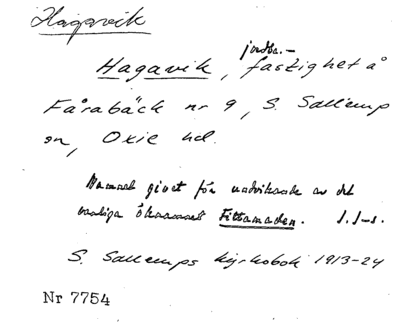 Hagavik
jordbr.-
Hagavik, fastighet å
Fårabäck nr 9, S. Sallerups
sn, Oxie hd.
Namnet givet för undvikande av det
vanliga öknamnet Fittamaden. S.S-s.
S. Sallerups kyrkobok 1913-24
Nr 7754